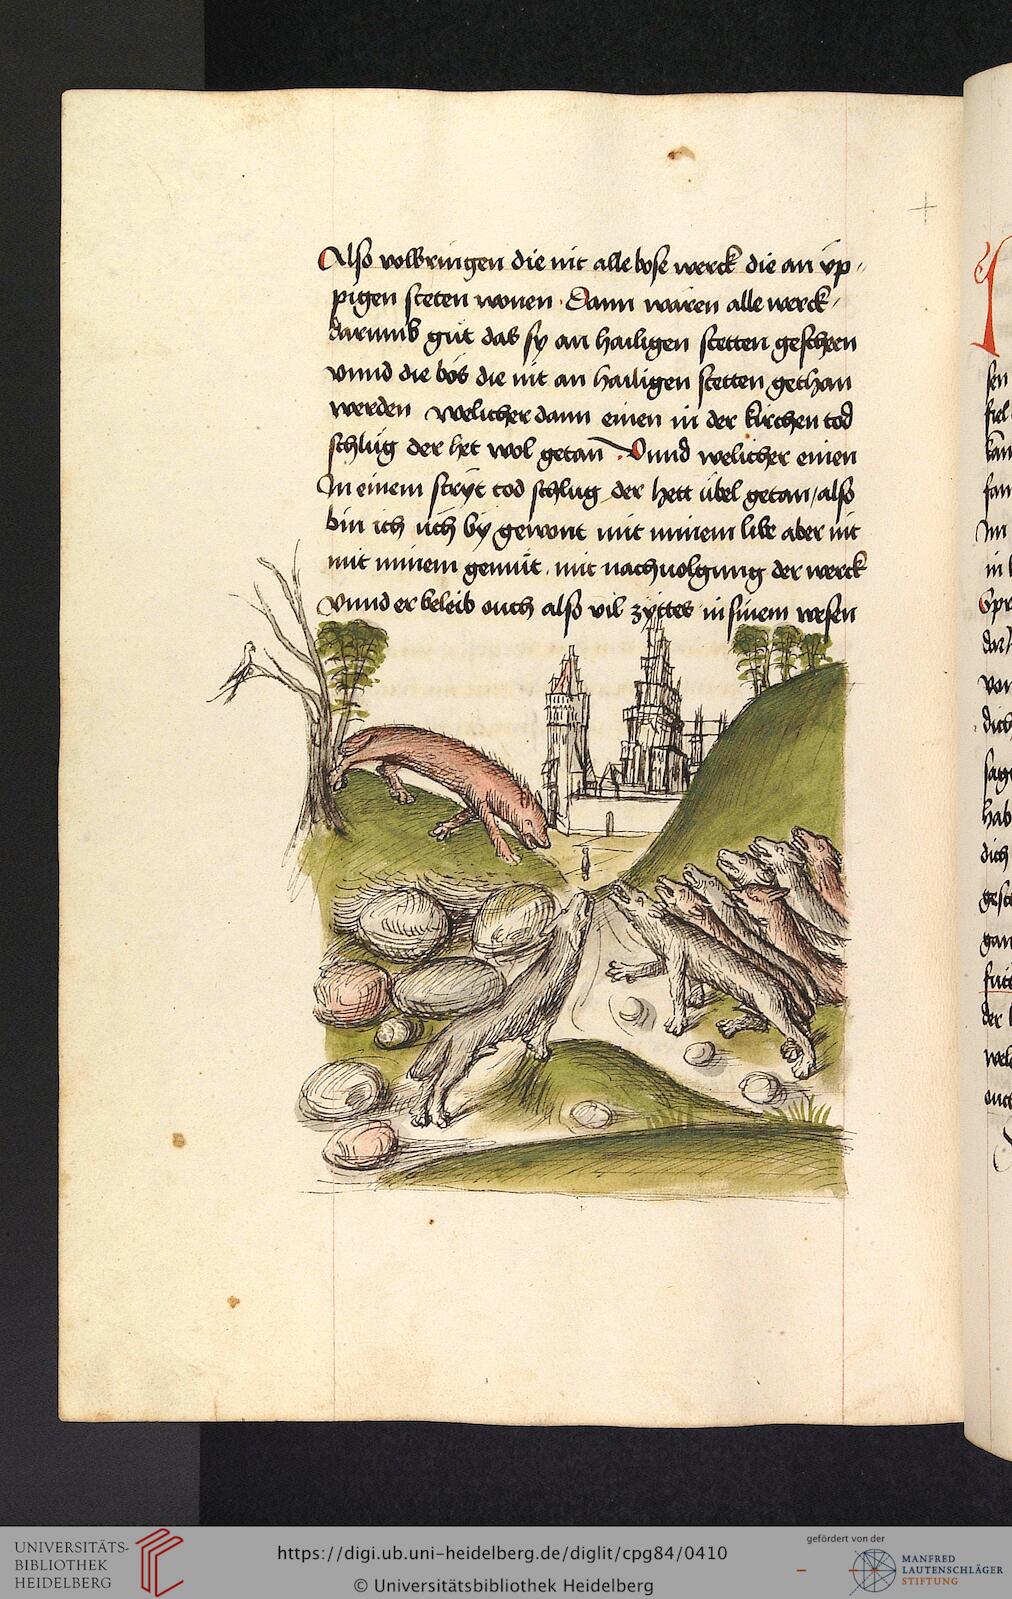 Also volbringen die nit alle böse werck die an üp-
pigen steten wonen · Dann wären alle werck
darumb gůt das sy an hailigen stetten geschehen
vnnd die bös die nit an hailigen stetten gethan
werden welicher dann einen in der kirchen tod
schlůg der het wol getan · Vnnd welicher einen
In einem stryt tod schlůg der hett übel getan / also
bin ich üch by gewont mit minem libe aber nit
mit minem gemüt · mit nachuolgung der werck
vnnd er beleib ouch also vil zyttes in sinem wesen
sen
fiel
fan
Im
in
Spr
dar
von
dich
sag
hab
dich
gesc
gan
der
wel
ouch
UNIVERSITÄTS-
BIBLIOTHEK
HEIDELBERG
https://digi.ub.uni-heidelberg.de/diglit/cpg84/0410
© Universitätsbibliothek Heidelberg
gefördert von der
MANFRED
LAUTENSCHLÄGER
STIFTUNG